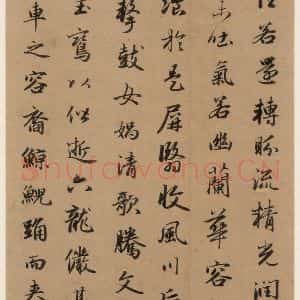 若還轉眄流精光潤
未吐氣若幽蘭華容
於是屏翳收風川后
擊鼓女媧清歌騰文
玉鸞以偕逝六龍儼其
車之容裔鯨鯢踊而夾
shufawang.CN